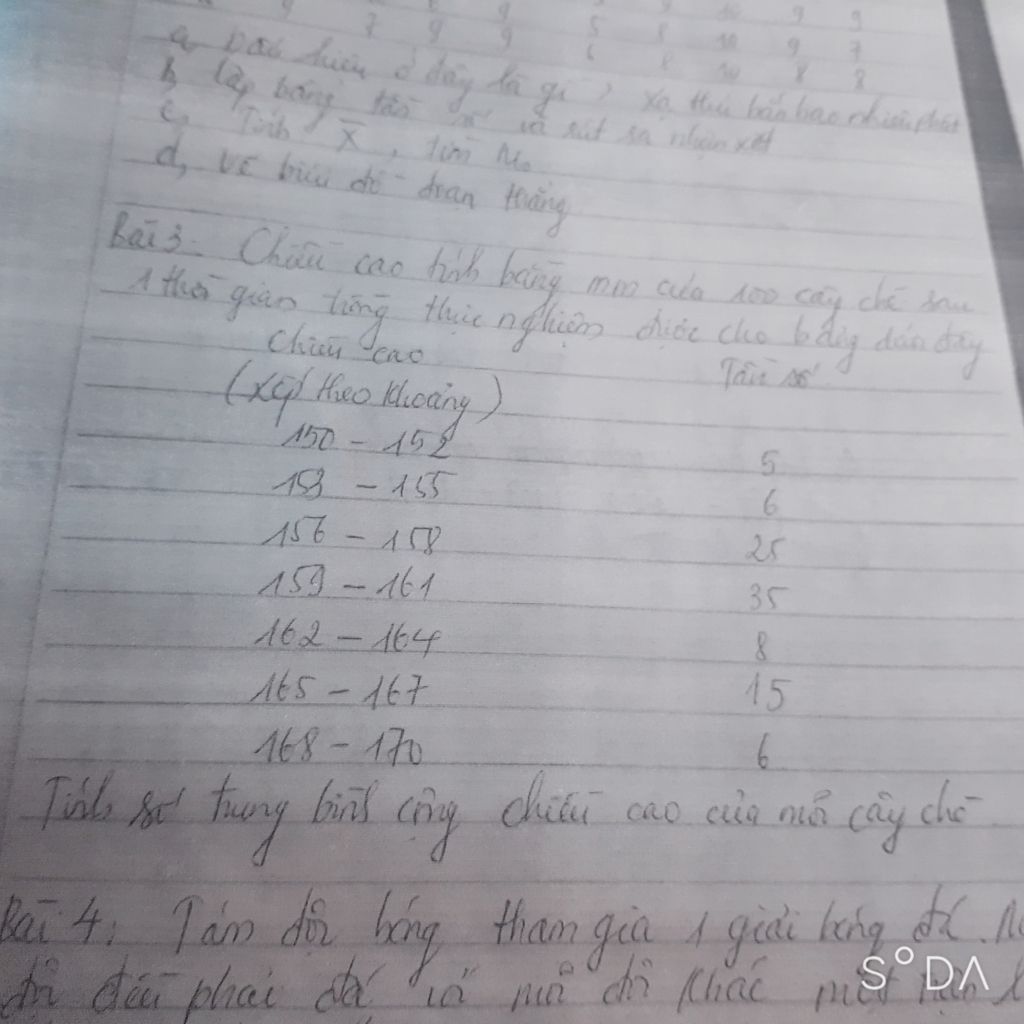 9 9 10 9 9
7 9 9 5 8 10 9 7
6 8 10 8 8
a, Dấu hiệu ở đây là gì? Xạ thủ bắn bao nhiêu phát
b, Lập bảng tần số và rút ra nhận xét
c, Tính X̄, tìm M₀
d, vẽ biểu đồ đoạn thẳng
Bài 3. Chiều cao tính bằng mm của 100 cây chè sau
1 thời gian trồng thực nghiệm được cho ở đây
Chiều cao Tần số
(xếp theo khoảng)
150 - 152 5
153 - 155 6
156 - 158 25
159 - 161 35
162 - 164 8
165 - 167 15
168 - 170 6
Tính số trung bình cộng chiều cao của mỗi cây chè
Bài 4: Tám đội bóng tham gia 1 giải bóng đá.
đội đều phải đá với mỗi đội khác một trận
S°DA